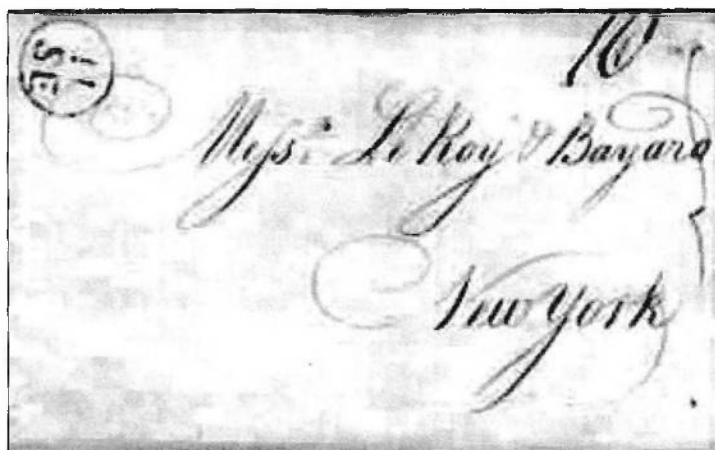 11
SE
Messrs. Le Roy & Bayard
New York